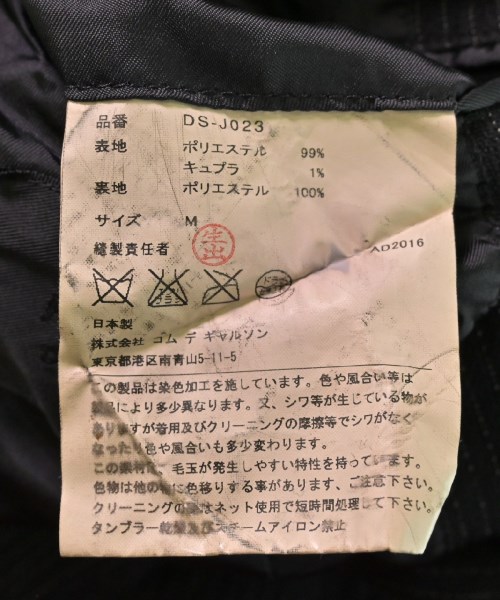 品番 DS-J023
表地 ポリエステル 99%
キュプラ 1%
裏地 ポリエステル 100%
サイズ M
縫製責任者 生出
AD2016
日本製
株式会社 コム デ ギャルソン
東京都港区南青山5-11-5
この製品は染色加工を施しています。色や風合い等は
製品により多少異なります。又、シワ等が生じている物が
ありますが着用及びクリーニングの摩擦等でシワがなく
なったり色や風合いも多少変わります。
この素材は、毛玉が発生しやすい特性を持っています。
色物は他の物に色移りする事があります、ご注意下さい。
クリーニングの際はネット使用で短時間処理して下さい。
タンブラー乾燥及びスチームアイロン禁止